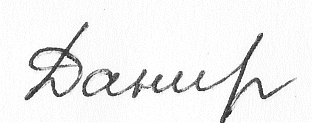 Данир